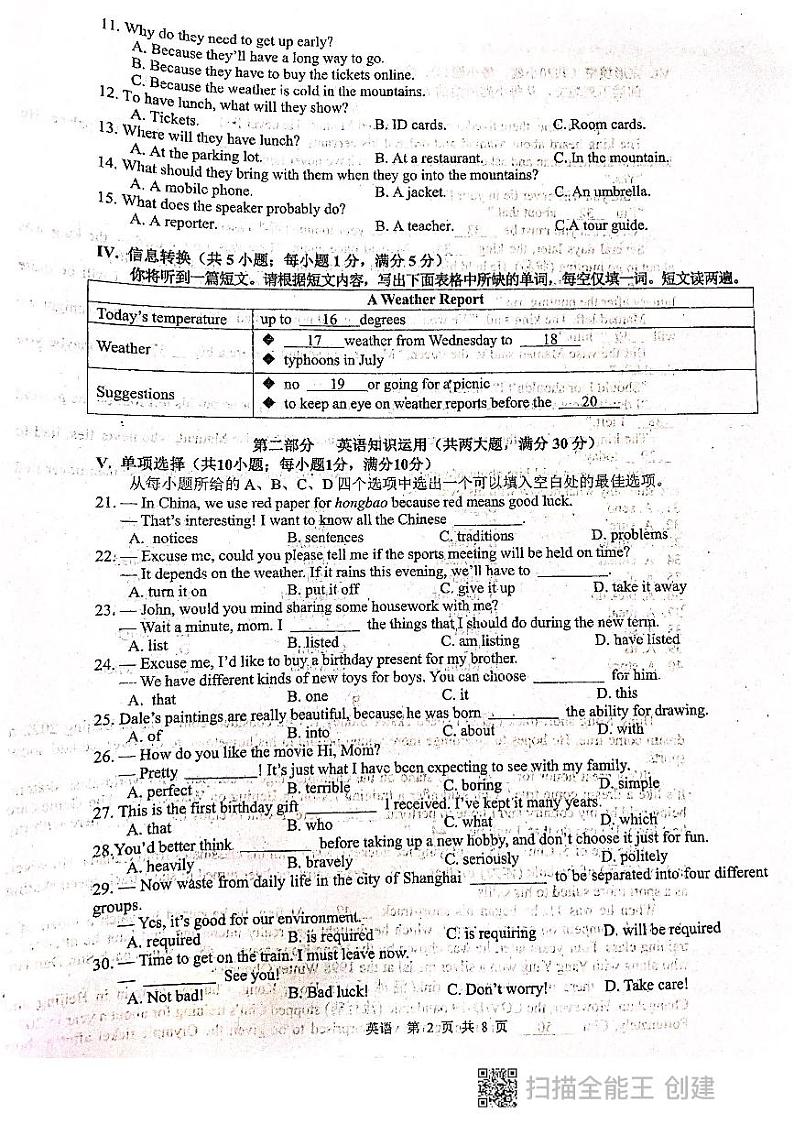 11. Why do they need to get up early?
A. Because they'll have a long way to go.
B. Because they have to buy the tickets online.
C. Because the weather is cold in the mountains.
12. To have lunch, what will they show?
A. Tickets. B. ID cards. C. Room cards.
13. Where will they have lunch?
A. At the parking lot. B. At a restaurant. C. In the mountain.
14. What should they bring with them when they go into the mountains?
A. A mobile phone. B. A jacket. C. An umbrella.
15. What does the speaker probably do?
A. A reporter. B. A teacher. C.A tour guide.
IV. 信息转换（共 5 小题；每小题 1 分，满分 5 分）
你将听到一篇短文。请根据短文内容，写出下面表格中所缺的单词，每空仅填一词。短文读两遍。
A Weather Report
Today's temperature up to __16__ degrees
Weather ◆ __17__ weather from Wednesday to __18__
◆ typhoons in July
Suggestions ◆ no __19__ or going for a picnic
◆ to keep an eye on weather reports before the __20__
第二部分 英语知识运用（共两大题，满分 30 分）
V. 单项选择（共10小题；每小题1分，满分10分）
从每小题所给的 A、B、C、D 四个选项中选出一个可以填入空白处的最佳选项。
21. — In China, we use red paper for hongbao because red means good luck.
— That's interesting! I want to know all the Chinese ________.
A. notices B. sentences C. traditions D. problems
22. — Excuse me, could you please tell me if the sports meeting will be held on time?
— It depends on the weather. If it rains this evening, we'll have to ________.
A. turn it on B. put it off C. give it up D. take it away
23. — John, would you mind sharing some housework with me?
— Wait a minute, mom. I ________ the things that I should do during the new term.
A. list B. listed C. am listing D. have listed
24. — Excuse me, I'd like to buy a birthday present for my brother.
— We have different kinds of new toys for boys. You can choose ________ for him.
A. that B. one C. it D. this
25. Dale's paintings are really beautiful, because he was born ________ the ability for drawing.
A. of B. into C. about D. with
26. — How do you like the movie Hi, Mom?
— Pretty ________! It's just what I have been expecting to see with my family.
A. perfect B. terrible C. boring D. simple
27. This is the first birthday gift ________ I received. I've kept it many years.
A. that B. who C. what D. which
28.You'd better think ________ before taking up a new hobby, and don't choose it just for fun.
A. heavily B. bravely C. seriously D. politely
29. — Now waste from daily life in the city of Shanghai ________ to be separated into four different
groups.
— Yes, it's good for our environment.
A. required B. is required C. is requiring D. will be required
30. — Time to get on the train. I must leave now.
— ________ See you!
A. Not bad! B. Bad luck! C. Don't worry! D. Take care!
英语 第 2 页 共 8 页
扫描全能王 创建